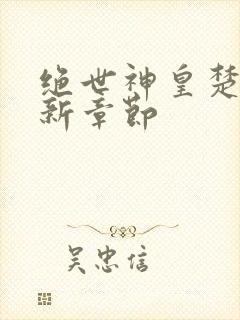 绝世神皇楚
新章节
吴忠信